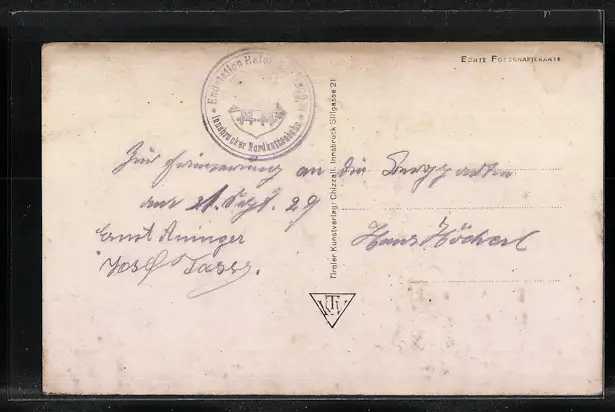 ECHTE FOTOGRAFIEKARTE
Endstation Hafelekar
Innsbrucker Nordkettenbahn
Zur Erinnerung an die Bergpartie
am 21. Sept. 29
Ernst Aninger
Josef
Hans Höcherl
Tiroler Kunstverlag Chizzali, Innsbruck Sillgasse 21
TKV